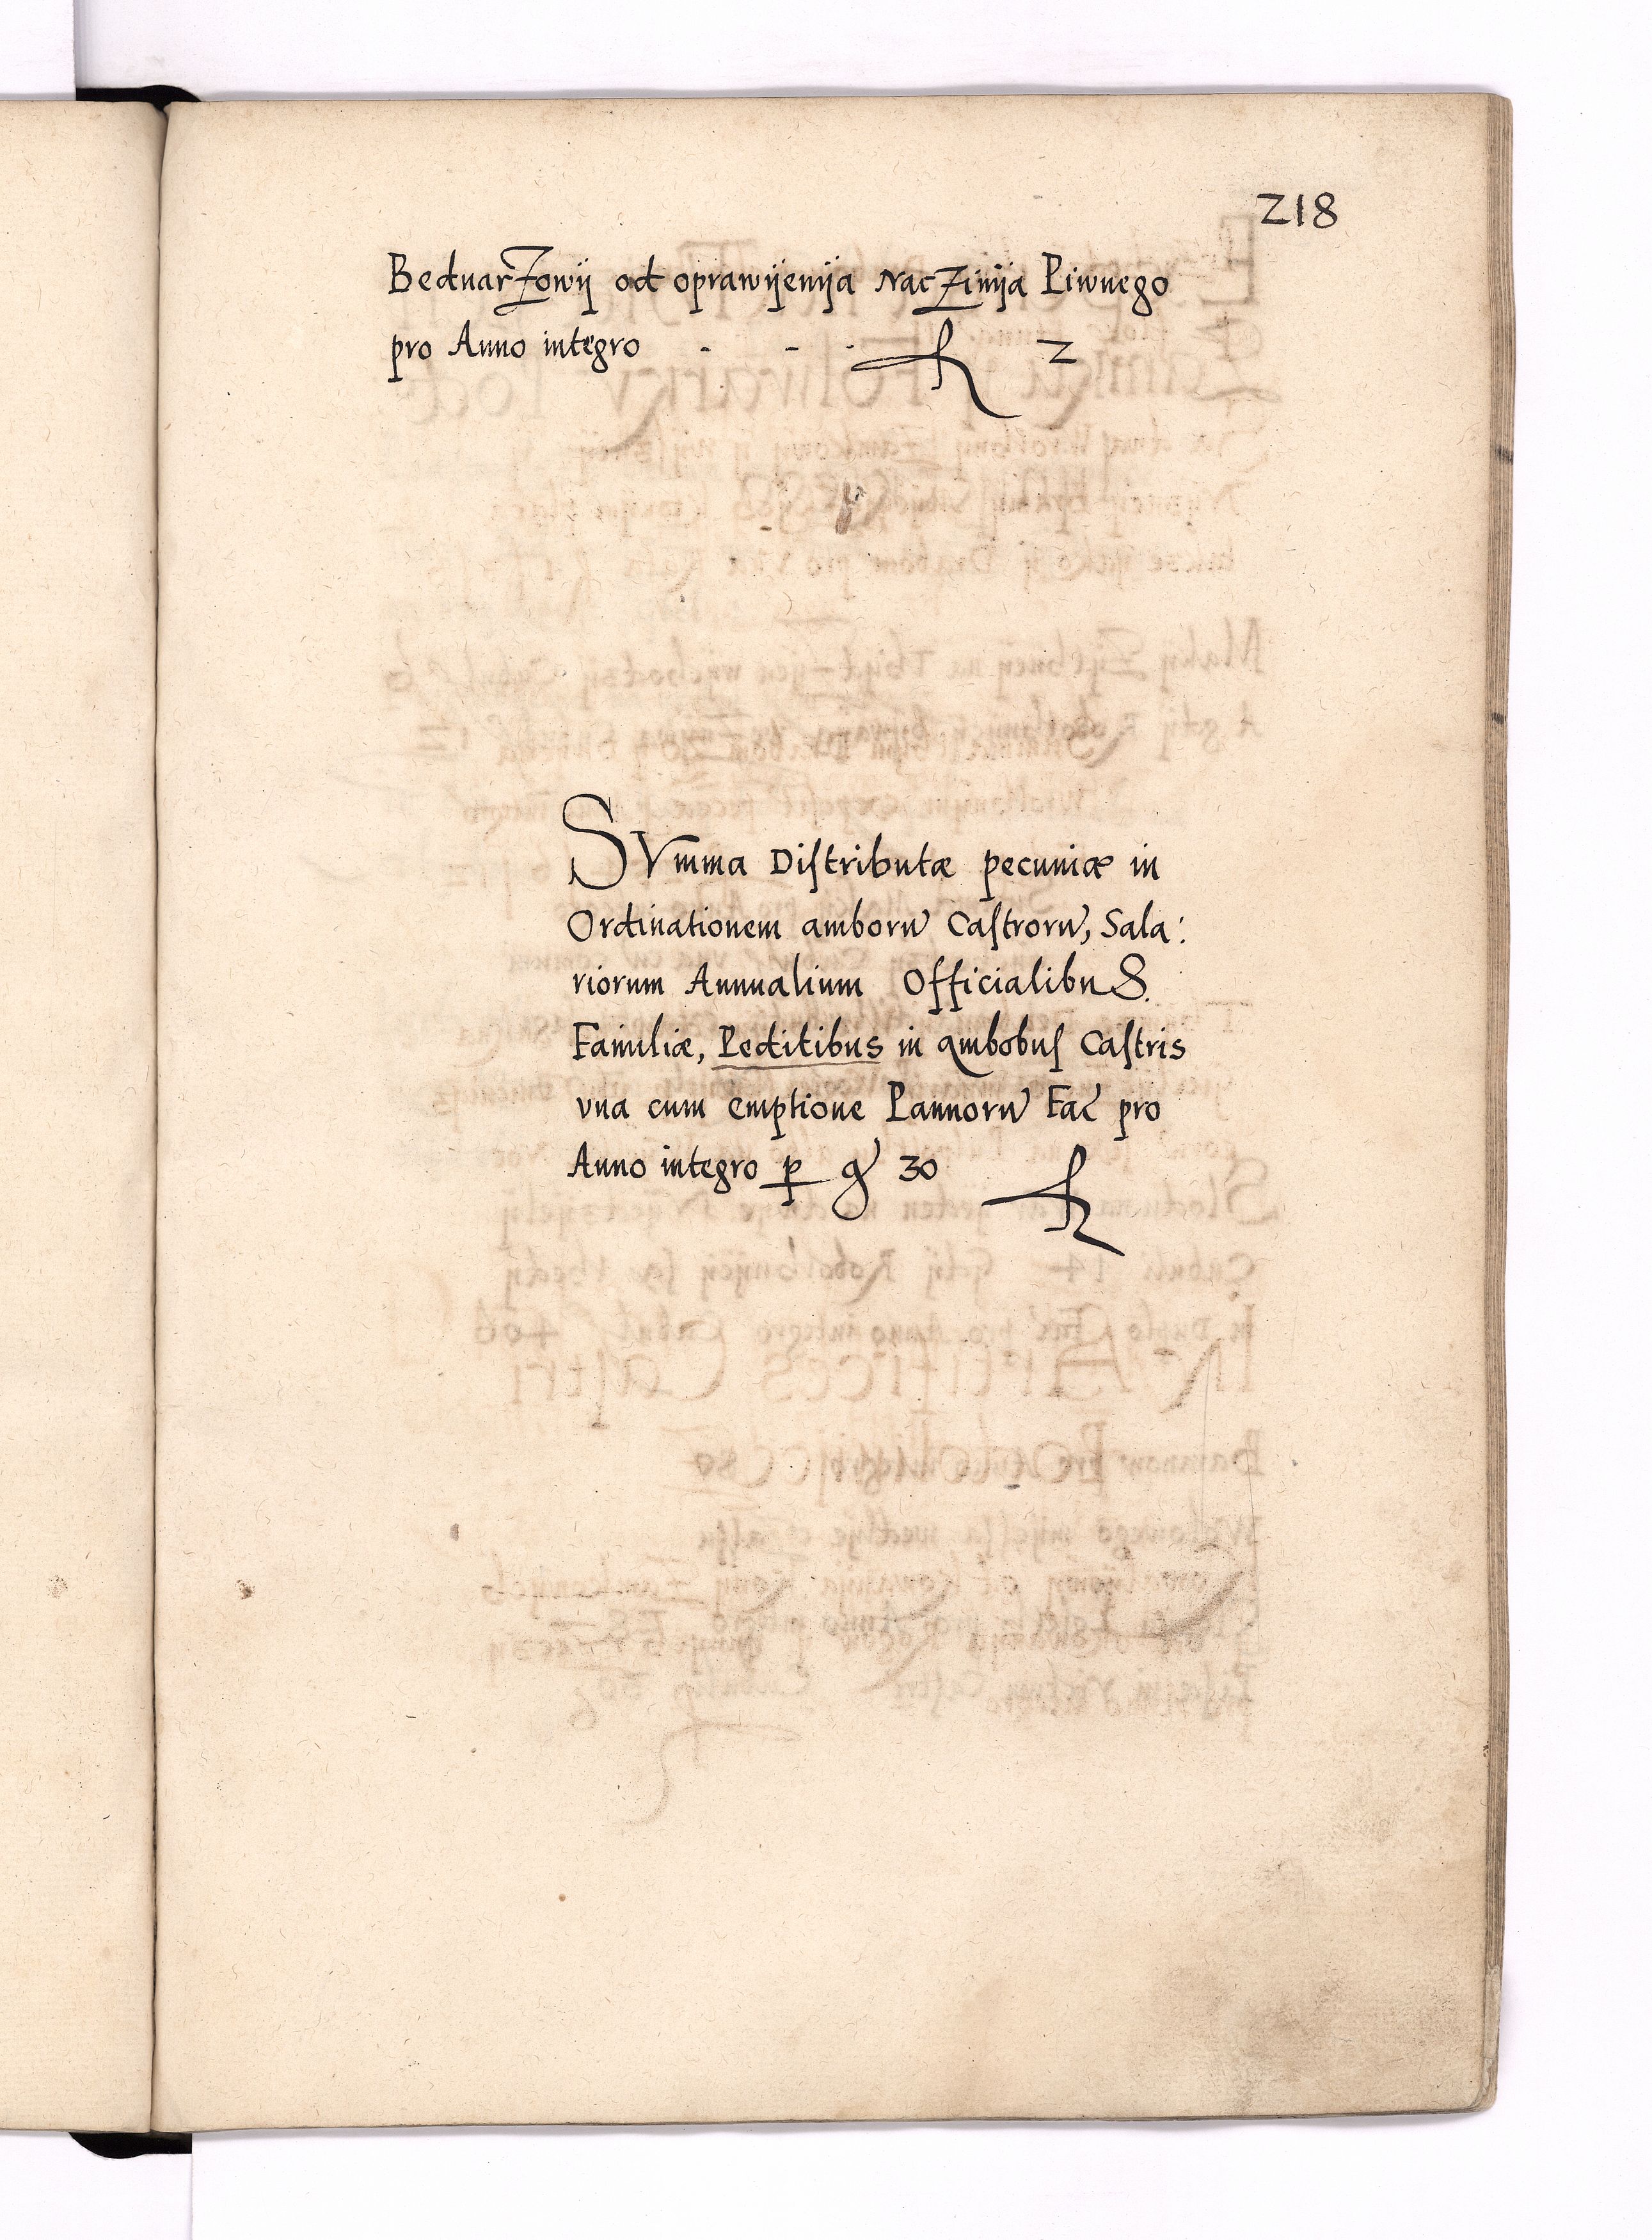 218
Bednarzowij od oprawijenija naczinija Piwnego
pro Anno integro - - - fl 2
SVmma Distributæ pecuniæ in
Ordinationem amborũ Castrorũ, Sala:
riorum Annualium Officialibus.
Familiæ, Peditibus in ambobus Castris
vna cum emptione Pannorũ Fac̃ pro
Anno integro ꝑ gͬ 30 fl